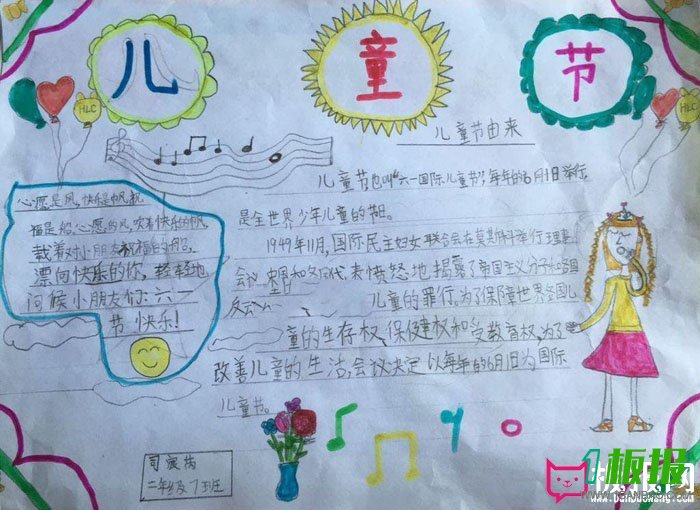 儿 童 节
HLC
HLC
儿童节由来
儿童节也叫“六一国际儿童节”,每年的6月1日举行
是全世界少年儿童的节日。
1949年11月,国际民主妇女联合会在莫斯科举行理事
会议 中国和各国代表愤怒地揭露了帝国主义分子和各国
反云
儿童的罪行。为了保障世界各国儿
童的生存权、保健权和受教育权,为了
改善儿童的生活,会议决定以每年的6月1日为国际
儿童节。
心愿是风,快乐是帆,祝
福是船。心愿的风,吹着快乐的帆,
载着对小朋友祝福的船,
漂向快乐的你,轻轻地
问候小朋友们:六一
节快乐!
二年级7班
板报网
1板报